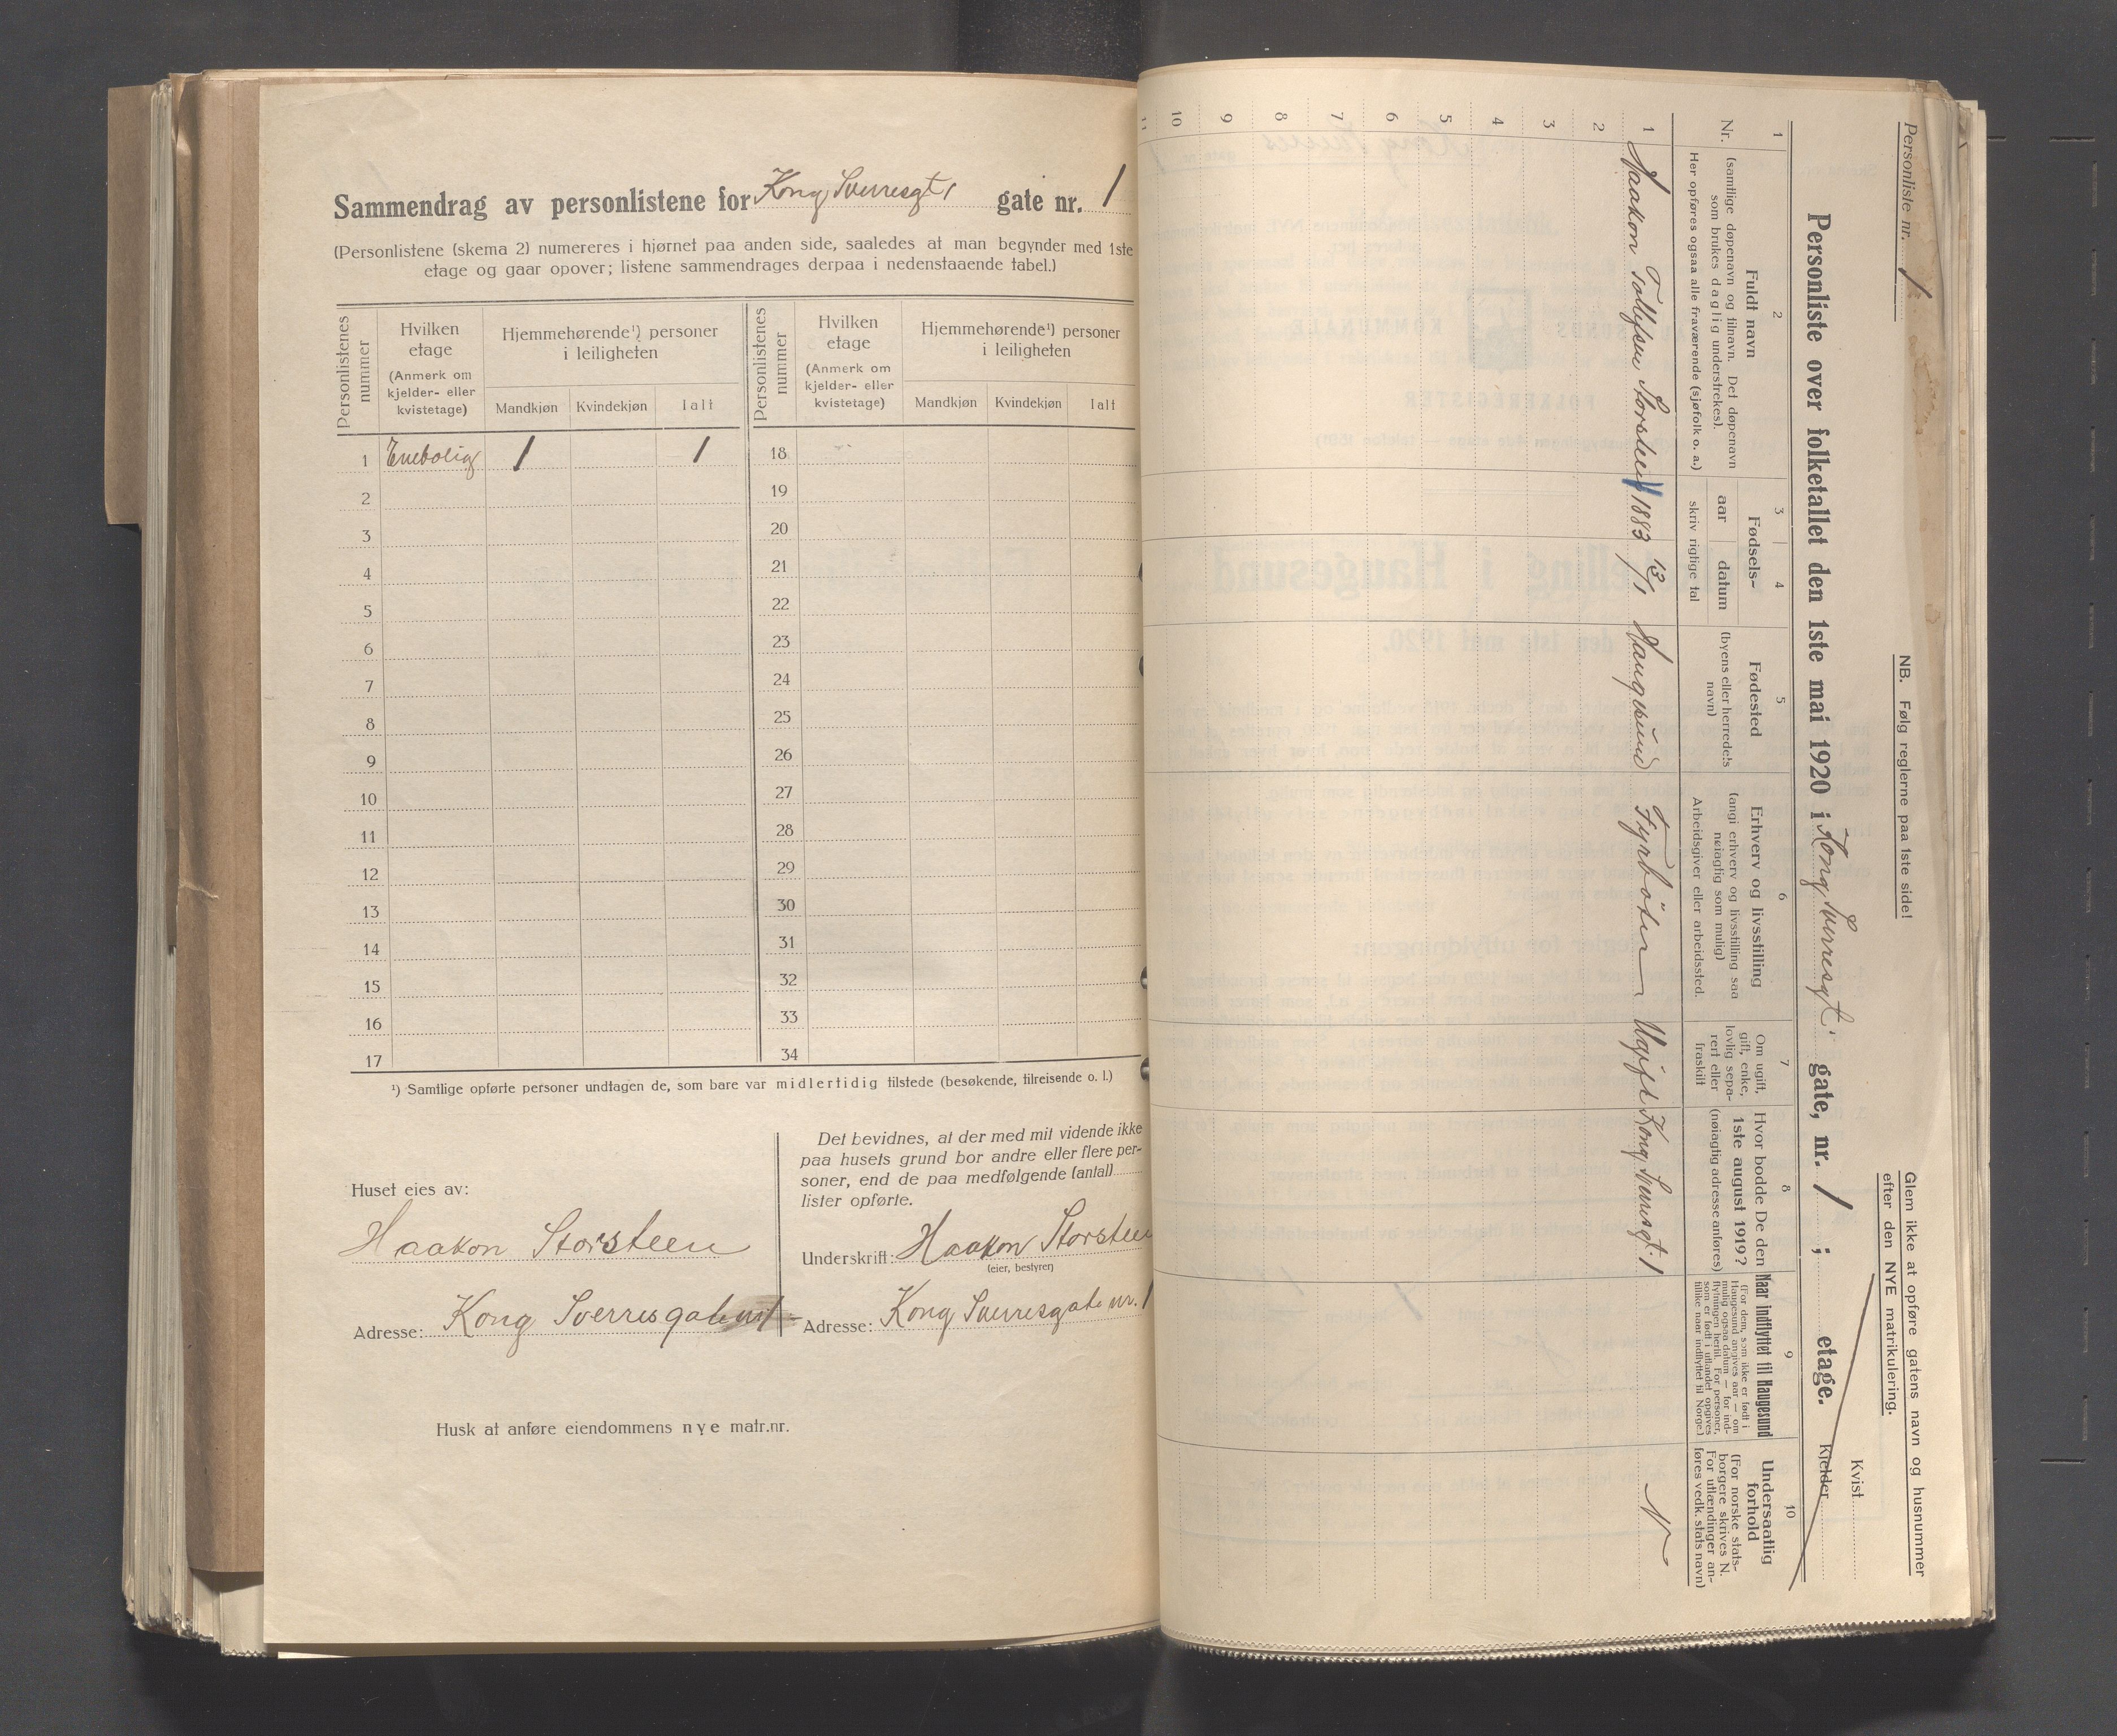 Sammendrag av personlistene for Kong Sverresgt, gate nr. 1
(Personlistene (skema 2) numereres i hjørnet paa anden side, saaledes at man begynder med 1ste
etage og gaar opover; listene sammendrages derpaa i nedenstaaende tabel.)
Personlistenes nummer
Hvilken
etage
(Anmerk om
kjelder- eller
kvistetage)
Hjemmehørende¹) personer
i leiligheten
Mandkjøn Kvindekjøn Ialt
Personlistenes nummer
Hvilken
etage
(Anmerk om
kjelder- eller
kvistetage)
Hjemmehørende¹) personer
i leiligheten
Mandkjøn Kvindekjøn Ialt
1 Enebolig 1 1 18
2 19
3 20
4 21
5 22
6 23
7 24
8 25
9 26
10 27
11 28
12 29
13 30
14 31
15 32
16 33
17 34
¹) Samtlige opførte personer undtagen de, som bare var midlertidig tilstede (besøkende, tilreisende o. l.)
Huset eies av:
Haakon Storsteen
Adresse: Kong Sverresgate nr 1
Det bevidnes, at der med mit vidende ikke
paa husets grund bor andre eller flere per-
soner, end de paa medfølgende (antal)
lister opførte.
Underskrift: Haakon Storsteen
(eier, bestyrer)
Adresse: Kong Sverresgate nr. 1
Husk at anføre eiendommens nye matr.nr.
Personliste nr. 1
NB. Følg reglerne paa 1ste side!
Glem ikke at opføre gatens navn og husnummer
efter den NYE matrikulering.
Personliste over folketallet den 1ste mai 1920 i Kong Sverresgt. gate, nr. 1 ; etage.
Kvist
Kjelder
1 2 3 4 5 6 7 8 9 10
Nr.
Fuldt navn
(samtlige døpenavn og tilnavn. Det døpenavn
som brukes daglig understrekes).
Her opføres ogsaa alle fraværende (sjøfolk o. a.)
Fødsels-
aar datum
skriv rigtige tal
Fødested
(byens eller herredets
navn)
Erhverv og livsstilling
(angi erhverv og livsstilling saa
nøiagtig som mulig)
Arbeidsgiver eller arbeidssted.
Om ugift,
gift, enke,
lovlig sepa-
rert eller
fraskilt
Hvor bodde De den
1ste august 1919?
(nøiagtig adresse anføres)
Naar indflyttet til Haugesund
(For dem, som ikke er født i
Haugesund angives aar — om
mulig ogsaa datum — for ind-
flytningen hertil. For personer,
som er født i utlandet opgives
tillike naar indflyttet til Norge.)
Undersaatlig
forhold
(For norske stats-
borgere skrives N.
For utlændinger an-
føres vedk. stats navn)
1 Haakon Tollefsen Storsteen 1883 13/1 Haugesund Fyrbøter Ugift Kong Sverresgt. 1 N
2
3
4
5
6
7
8
9
10
11